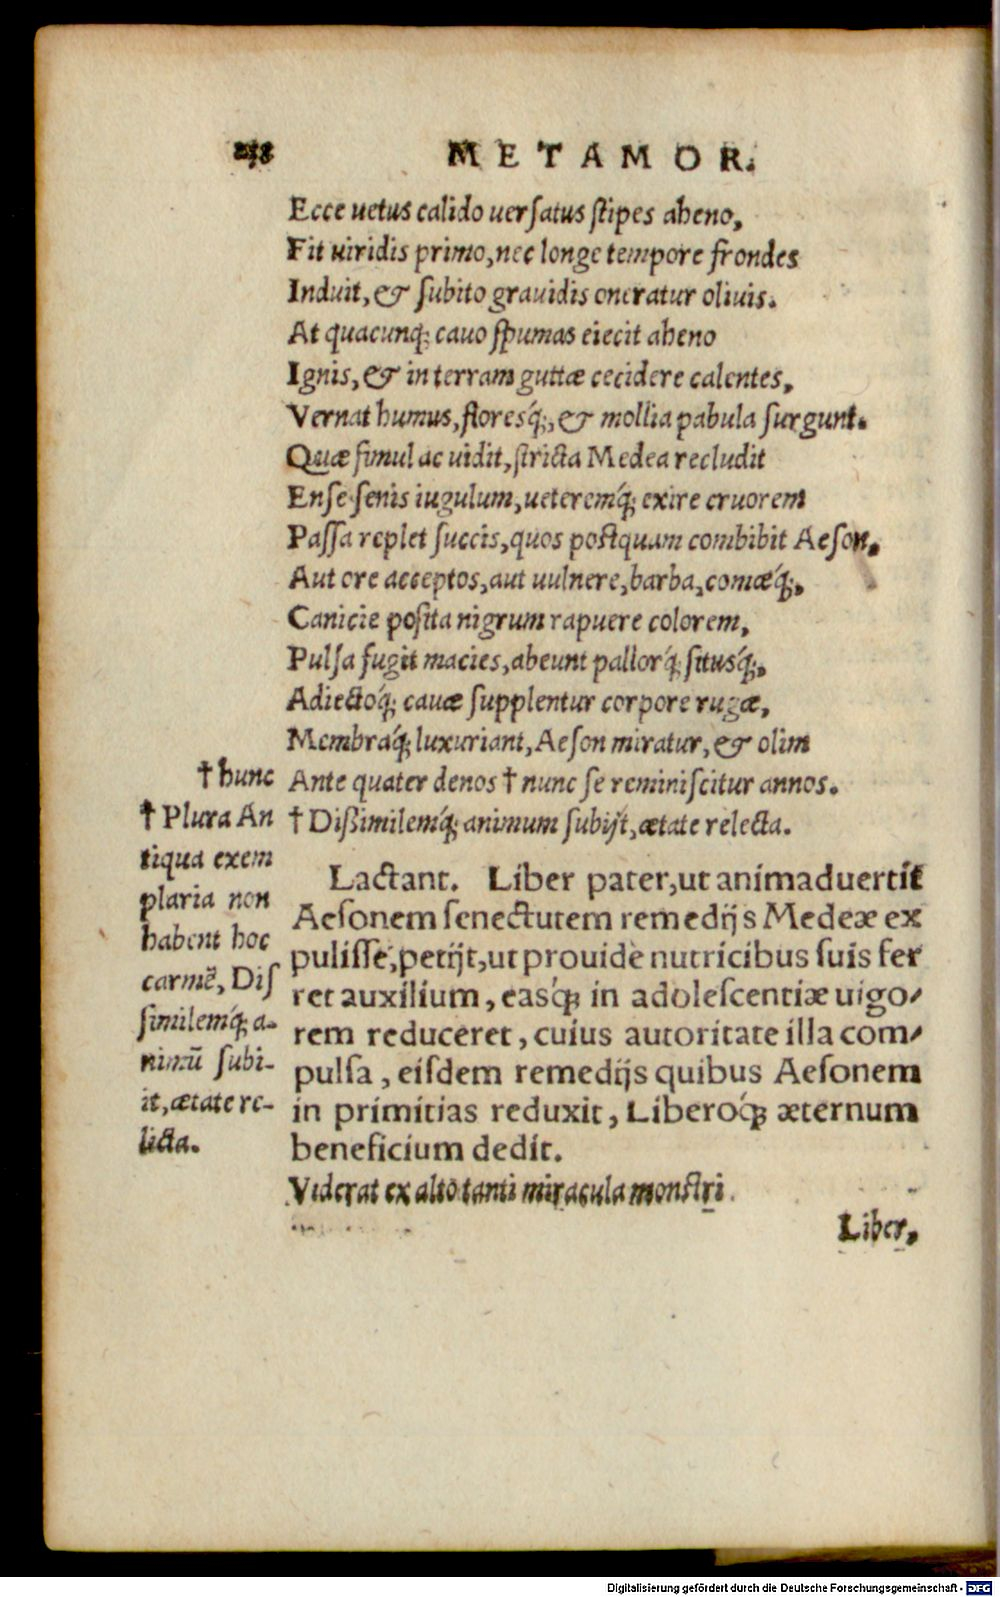 METAMOR.
Ecce uetus calido uersatus stipes aheno,
Fit uiridis primo, nec longe tempore frondes
Induit, & subito grauidis oneratur oliuis.
At quacunq; cauo spumas eiecit aheno
Ignis, & in terram guttæ cecidere calentes,
Vernat humus, floresq́;, & mollia pabula surgunt.
Quæ simul ac uidit, stricta Medea recludit
Ense senis iugulum, ueteremq́; exire cruorem
Passa replet succis, quos postquam combibit Aeson,
Aut ore acceptos, aut uulnere, barba, comæq́;,
Canicie posita nigrum rapuere colorem,
Pulsa fugit macies, abeunt pallorq́; situsq́;,
Adiectoq́; cauæ supplentur corpore rugæ,
Membraq́; luxuriant, Aeson miratur, & olim
Ante quater denos † nunc se reminiscitur annos.
† Dißimilemq́; animum subijt, ætate relecta.
† hunc
† Plura An
tiqua exem
plaria non
habent hoc
carmẽ, Dis
similemq́; a-
nimũ subi-
it, ætate re-
licta.
Lactant. Liber pater, ut animaduertit
Aesonem senectutem remedijs Medeæ ex
pulisse, petijt, ut prouidè nutricibus suis fer
ret auxilium, easq́; in adolescentiæ uigo/
rem reduceret, cuius autoritate illa com/
pulsa, eisdem remedijs quibus Aesonem
in primitias reduxit, Liberoq́; æternum
beneficium dedit.
Viderat ex alto tanti miracula monstri
Liber,
Digitalisierung gefördert durch die Deutsche Forschungsgemeinschaft - DFG